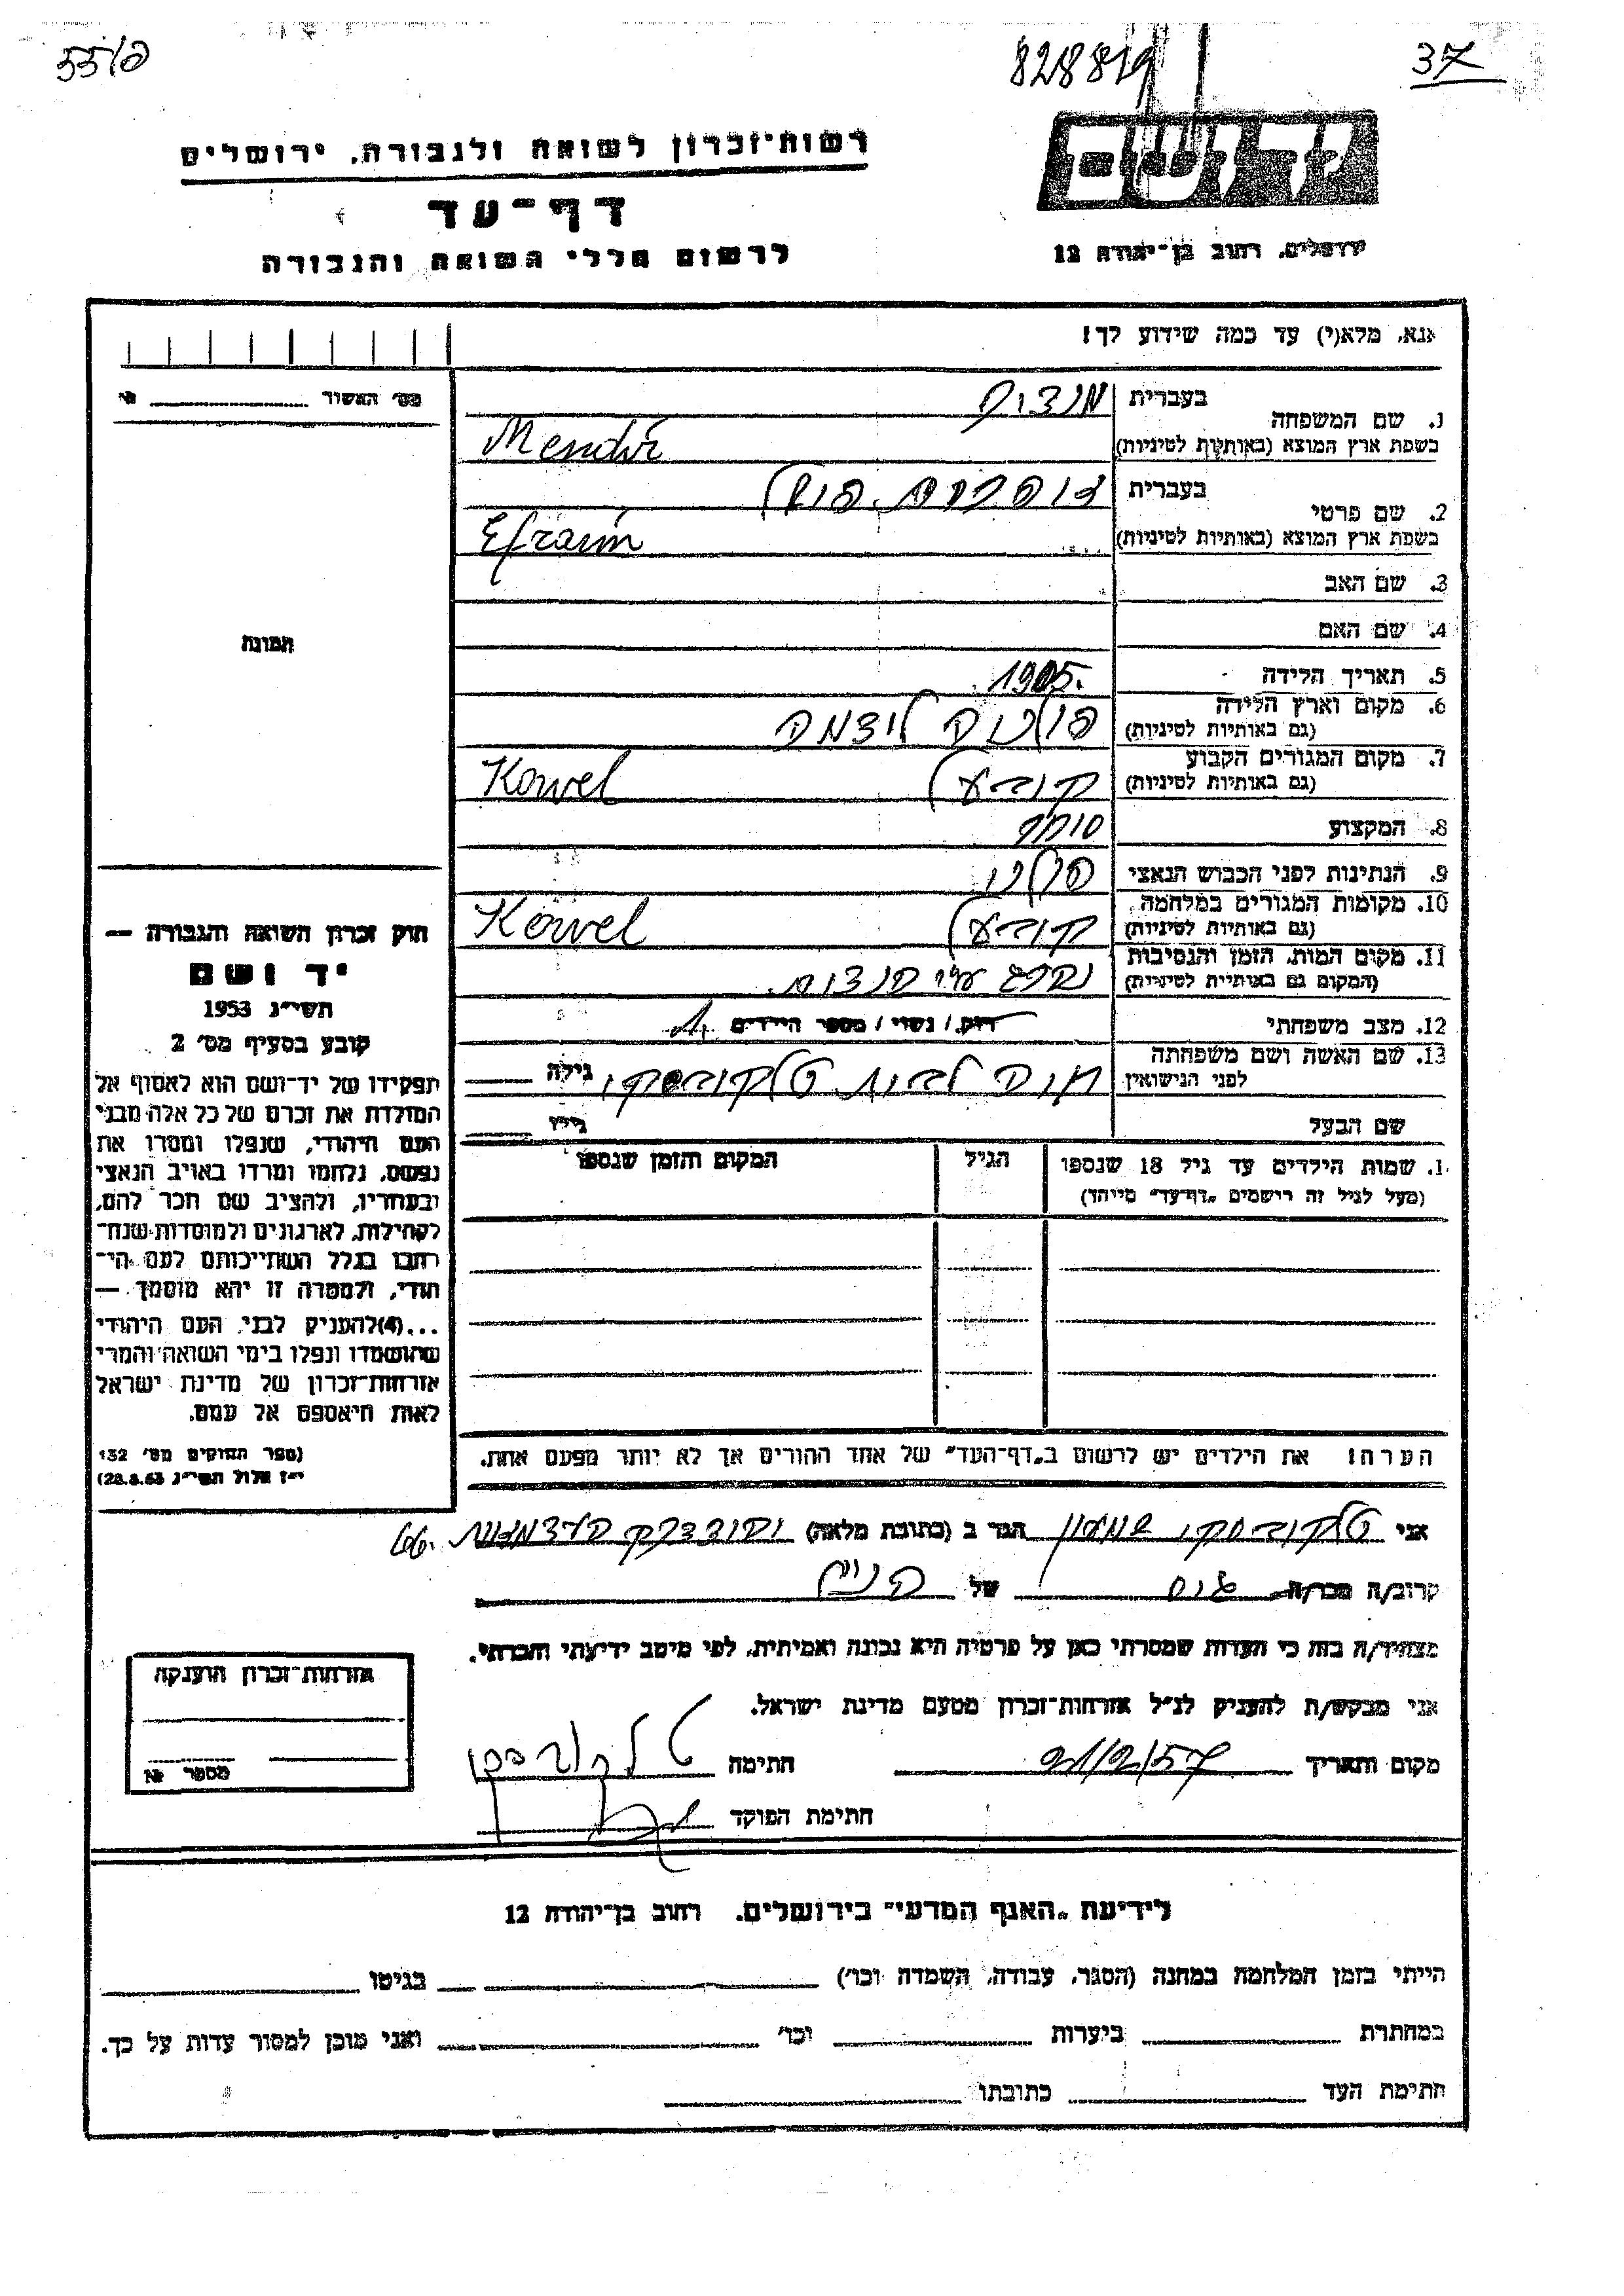 55/פ
828819
37
רשות־זכרון לשואה ולגבורה, ירושלים
דף־עד
לרשום חללי השואה והגבורה
יד ושם
ירושלים, רחוב בן־יהודה 12
אנא, מלא(י) עד כמה שידוע לך!
מס׳ האשור № 
1. שם המשפחה בעברית
בשפת ארץ המוצא (באותיות לטיניות) Mendik
2. שם פרטי בעברית
בשפת ארץ המוצא (באותיות לטיניות) Efraim
3. שם האב
4. שם האם
תמונה
5. תאריך הלידה 1905.
6. מקום וארץ הלידה
(גם באותיות לטיניות)
7. מקום המגורים הקבוע קובעל Kowel
(גם באותיות לטיניות)
8. המקצוע סוחר
9. הנתינות לפני הכבוש הנאצי פולני
10. מקומות המגורים במלחמה קובעל Kowel
(גם באותיות לטיניות)
11. מקום המות, הזמן והנסיבות
(המקום גם באותיות לטיניות)
12. מצב משפחתי רוק / נשוי / מספר הילדים 1
13. שם האשה ושם משפחתה גילה
לפני הנישואין
שם הבעל גילו
1. שמות הילדים עד גיל 18 שנספו הגיל המקום והזמן שנספו
(מעל לגיל זה רושמים „דף־עד״ מיוחד)
הערה! את הילדים יש לרשום ב„דף־העד״ של אחד ההורים אך לא יותר מפעם אחת.
חוק זכרון השואה והגבורה —
יד ושם
תשי״ג 1953
קובע בסעיף מס׳ 2
תפקידו של יד־ושם הוא לאסוף אל
המולדת את זכרם של כל אלה מבני
העם היהודי, שנפלו ומסרו את
נפשם, נלחמו ומרדו באויב הנאצי
ובעוזריו, ולהציב שם וזכר להם,
לקהילות, לארגונים ולמוסדות שנח־
רבו בגלל השתייכותם לעם הי־
הודי, ולמטרה זו יהא מוסמך —
...(4) להעניק לבני העם היהודי
שהושמדו ונפלו בימי השואה והמרי
אזרחות־זכרון של מדינת ישראל
לאות היאספם אל עמם.
(ספר החוקים מס׳ 132
י״ז אלול תשי״ג 28.8.53)
אני טלקובסקי שמעון הגר ב (כתובת מלאה)
קרוב/ה מכר/ה גיס של הנ״ל
מצהיר/ה בזה כי העדות שמסרתי כאן על פרטיה היא נכונה ואמיתית, לפי מיטב ידיעתי והכרתי.
אני מבקש/ת להעניק לנ״ל אזרחות־זכרון מטעם מדינת ישראל.
מקום ותאריך 21/2/57 חתימה טלקובסקי
חתימת הפוקד
אזרחות־זכרון הוענקה
מספר №
לידיעת „האגף המדעי״ בירושלים, רחוב בן־יהודה 12
הייתי בזמן המלחמה במחנה (הסגר, עבודה, השמדה וכו׳) בגיטו
במחתרת ביערות וכו׳ ואני מוכן למסור עדות על כך.
חתימת העד כתובתו